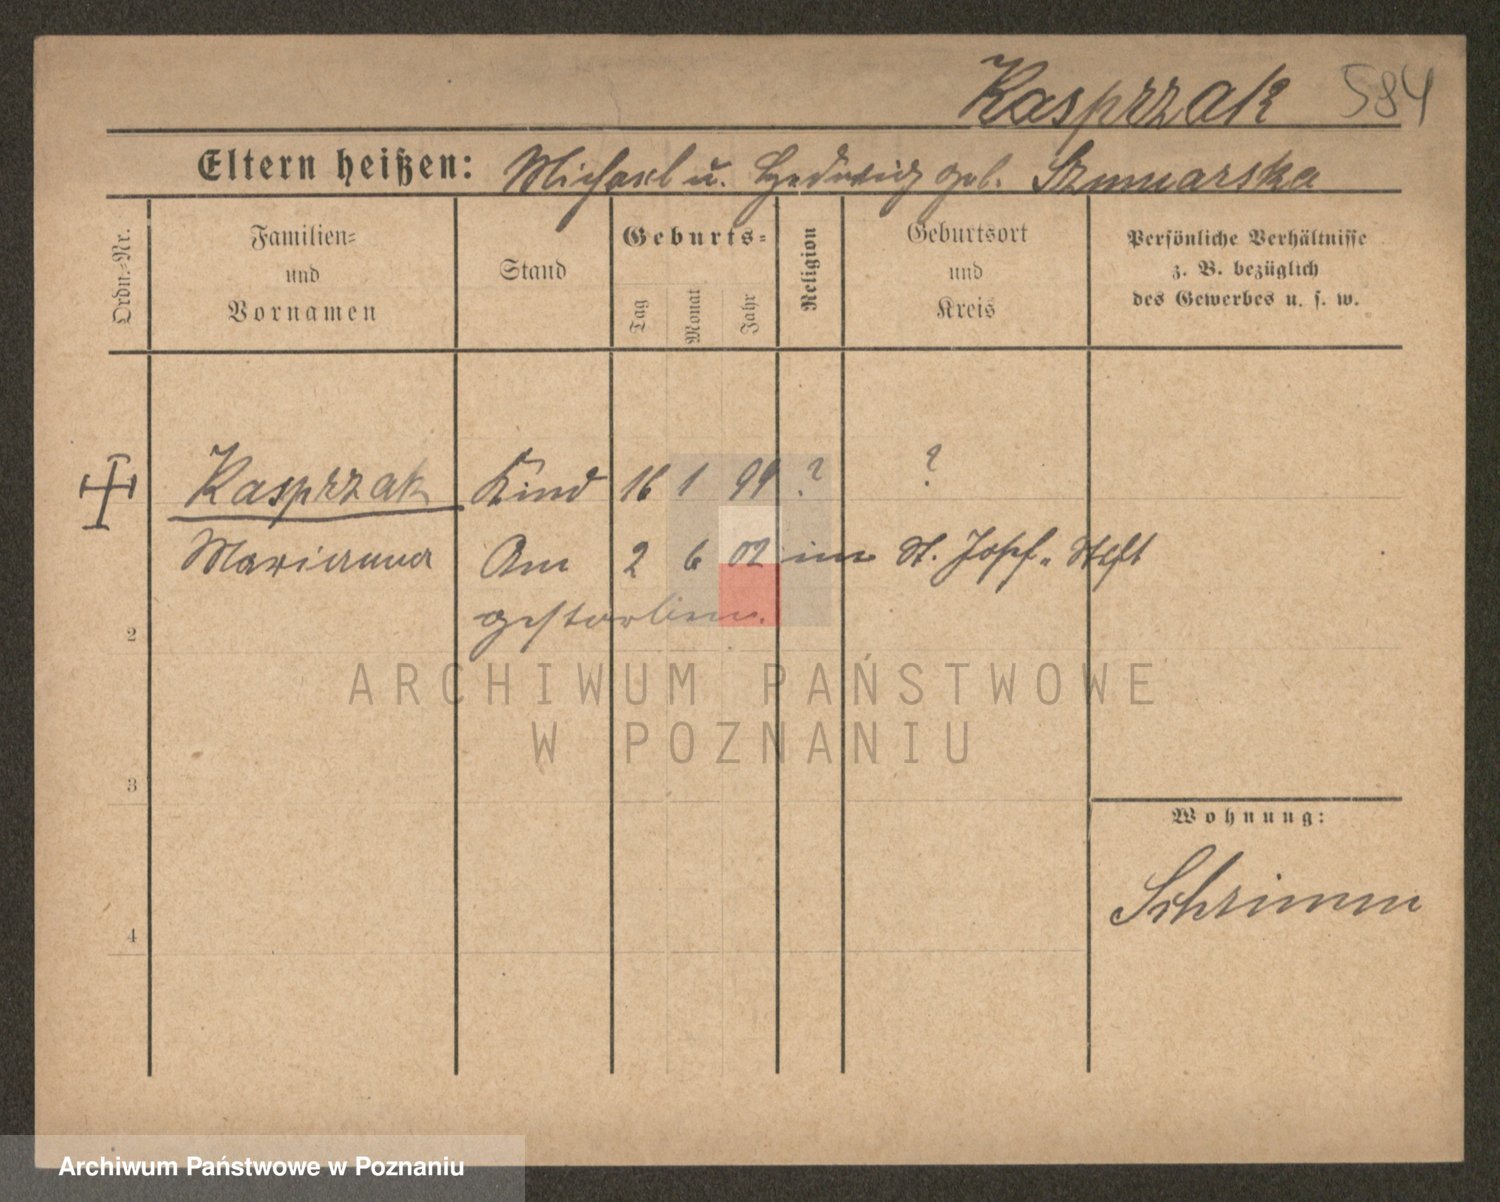 Kasprzak 584
Eltern heißen: Michael u. Hedwig geb. Szmuarska
Ordn.-Nr.
Familien-
und
Vornamen
Stand
Geburts-
Tag
Monat
Jahr
Religion
Geburtsort
und
Kreis
Persönliche Verhältnisse
z. B. bezüglich
des Gewerbes u. s. w.
Kasprzak Kind 16 1 99 ? ?
Marianna Am 2 6 02 im St. Josef-Stift
gestorben.
2
ARCHIWUM PAŃSTWOWE
W POZNANIU
3
Wohnung:
Schrimm
4
Archiwum Państwowe w Poznaniu